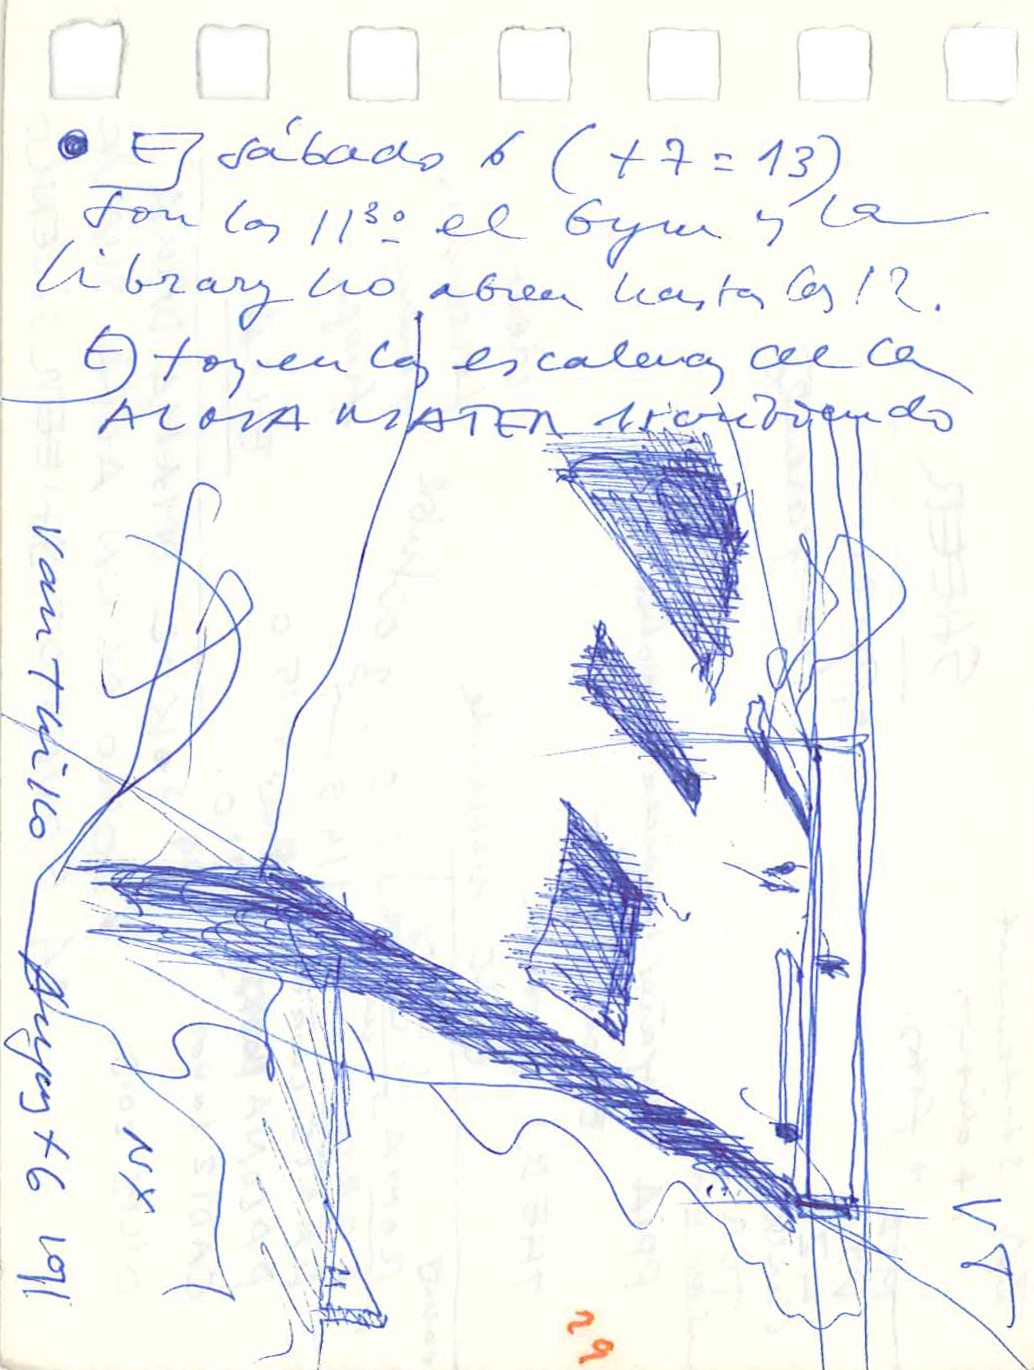 • El sábado 6 (+7=13)
Son las 11³⁰ el Gym y la
library no abren hasta las 12.
Estoy en las escaleras de la
ALMA MATER
Van Trullo
August 6 1911
NX
VT
29